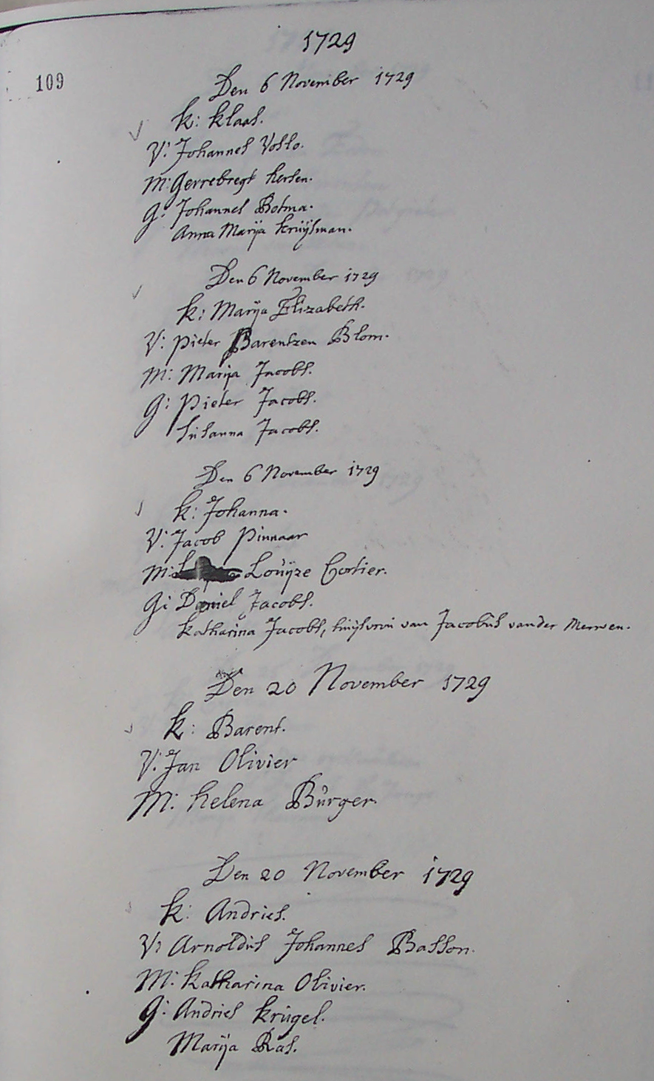 1729
109
Den 6 November 1729
K: Klaas.
V: Johannes Voslo.
M: Gerrebregt Kersen.
G: Johannes Botma.
Anna Marija Kruijsman.
Den 6 November 1729
K: Marija Elizabeth.
V: Pieter Barentzen Blom.
M: Marija Jacobs.
G: Pieter Jacobs.
Susanna Jacobs.
Den 6 November 1729
K: Johanna.
V: Jacob Pinnaar
M: Louijze Cortier.
G: Daniel Jacobs.
Katharina Jacobs, huijsvrou van Jacobus vander Merwen.
Den 20 November 1729
K: Barent.
V: Jan Olivier
M: Helena Burger.
Den 20 November 1729
K: Andries.
V: Arnoldus Johannes Basson.
M: Katharina Olivier.
G: Andries Krugel.
Marija Ras.